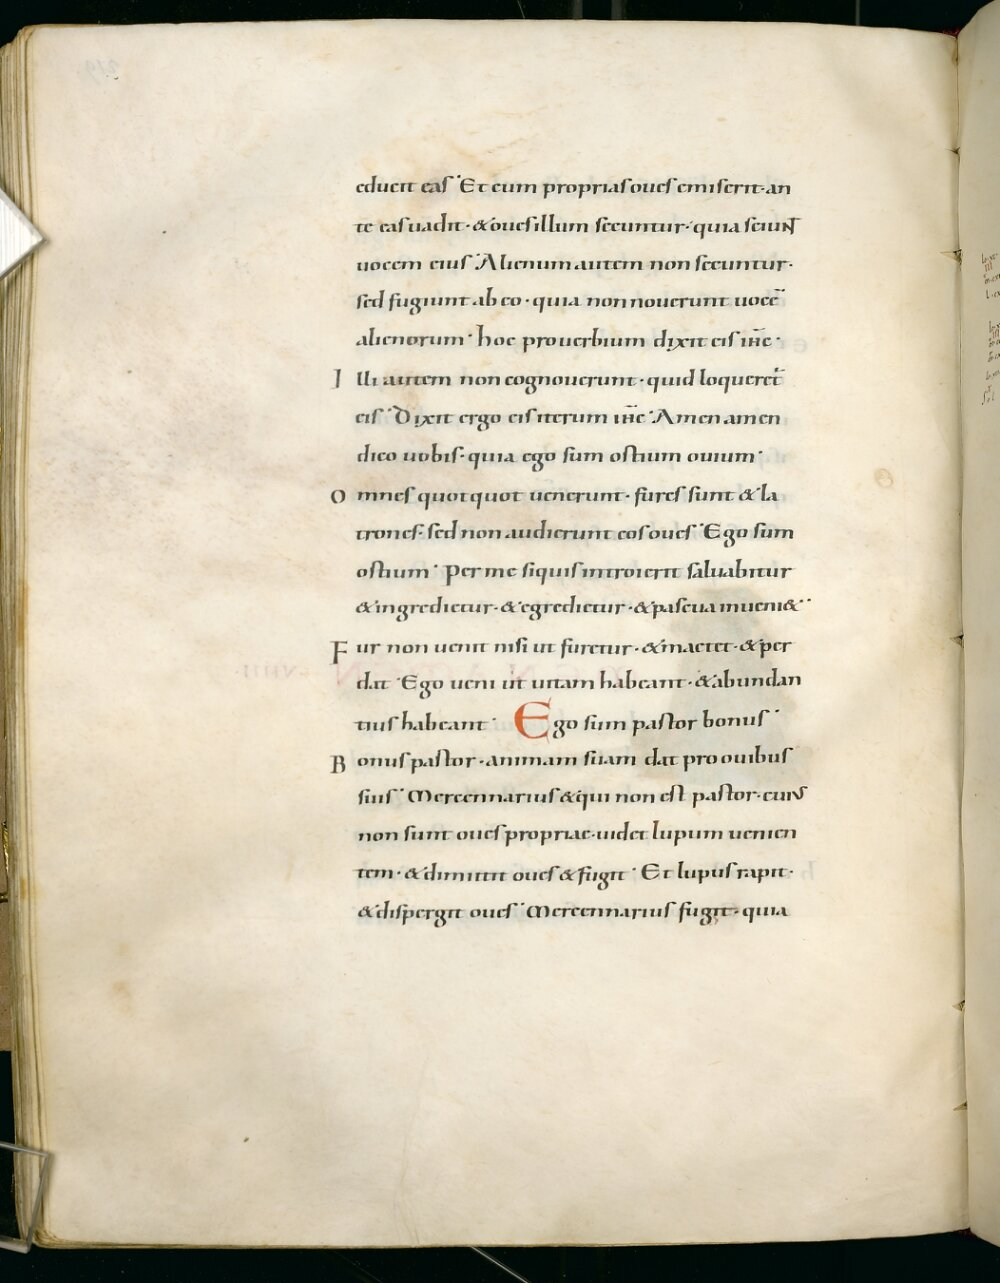 educit eas· Et cum proprias oues emiserit· an
te eas uadit· & oues illum secuntur· quia sciunt
uocem eius· Alienum autem non secuntur·
sed fugiunt ab eo· quia non nouerunt uocē
alienorum· hoc prouerbium dixit eis ihc̄·
Illi autem non cognouerunt· quid loqueret̄
eis· Dixit ergo eis iterum ihc̄· Amen amen
dico uobis· quia ego sum ostium ouium·
Omnes quotquot uenerunt· fures sunt & la
trones· sed non audierunt eos oues· Ego sum
ostium· Per me siquis introierit saluabitur
& ingredietur· & egredietur· & pascua inueni&·
Fur non uenit nisi ut furetur· & mactet· & per
dat· Ego ueni ut uitam habeant· & abundan
tius habeant· Ego sum pastor bonus·
Bonus pastor· animam suam dat pro ouibus
suis· Mercennarius & qui non est pastor· cuius
non sunt oues propriae· uidet lupum uenien
tem· & dimittit oues & fugit· Et lupus rapit·
& dispergit oues· Mercennarius fugit· quia